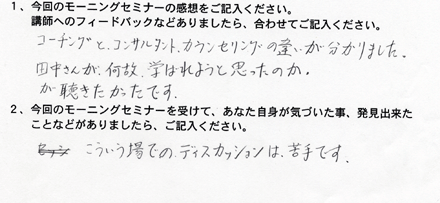 1、今回のモーニングセミナーの感想をご記入ください。
講師へのフィードバックなどありましたら、合わせてご記入ください。
コーチングと、コンサルタント、カウンセリングの違いが分かりました。
田中さんが、何故、学ばれようと思ったのか。
が聴きたかったです。
2、今回のモーニングセミナーを受けて、あなた自身が気づいた事、発見出来た
ことなどがありましたら、ご記入ください。
こういう場での、ディスカッションは、苦手です。